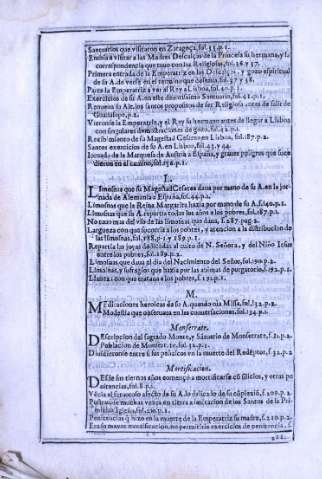 Santuarios que visitaron en Zaragoça, fol. 35. p. 1.
Embia a visitar a las Madres Descalças de la Princesa su hermana, y la
correspondencia que tuuo con las Religiosas, fol. 36. y 37.
Primera entrada de la Emperatriz en las Descalças, y gozo espiritual
de su A. de verse en el termino que
Parte la Emperatriz a ver al Rey a Lisboa, fol. 41. p. 1.
Exercicios de su A. en este deuotissimo Santuario, fol. 41. p. 1.
Renueua su A. los santos propositos de ser Religiosa antes de salir de
Guadalupe, p. 2.
Vieronse la Emperatriz, y el Rey su hermano antes de llegar a Lisboa
con singulares demostraciones de gozo, fol. 42. p. 1.
Recibimiento de su Magestad Cesarea en Lisboa, fol. 87. p. 2.
Santos exercicios de su A. en Lisboa, fol. 43. y 44.
Iornada de la Marquesa de Austria a España, y graues peligros que suce
dieron en el camino, fol.
L.
Limosnas que su Magestad Cesarea daua por mano de su A. en la jor
nada de Alemania a España, fol. 44. p. 1.
Limosnas que la Reina Margarita hazia por mano de su A. f. 140. p. 1.
Limosnas que su A. repartia todos los años a los pobres, fol. 187. p. 1.
No tratò mas del vso de las limosnas que daua, f. 187. pag. 2.
Largueza con que socorria a los pobres, y atencion a la distribucion de
las limosnas, fol. 188. p. 1. y 189. p. 1.
Repartia las joyas dedicadas al culto de N. Señora, y del Niño Iesus
entre los pobres, fol. 189. p. 1.
Limosnas que daua al dia del Nacimiento del Señor, fol. 190. p. 2.
Limosnas, y sufragios que hazia por las animas de purgatorio, f. 192. p. 1.
Llaneza con que trataua a los pobres, f. 192. p. 1.
M.
Meditaciones heroicas de su A. quando oìa Missa, fol. 132. p. 2.
Modestia que obseruaua en las conuersaciones, fol. 134. p. 1.
Monserrate.
Descripcion del sagrado Monte, y Santuario de Monserrate, f. 31. p. 2.
Poblacion de Monserrate, fol. 32. p. 1.
Diuidieronse entre si sus peñascos en la muerte del Redeptor, f. 32. p. 2.
Mortificacion.
Desde sus tiernos años començò a mortificarse cõ silicios, y otras pe
nitencias, fol. 8. p. 1.
de su A. de
de los Santos de la Pri
mitiua Iglesia, fol. 210. p. 1.
Penitencias q̃ hizo en la muerte de la Emperatriz su madre, f. 210. p. 2.
En su mayor mortificacion, no permitirle exercicios de penitencia, f.